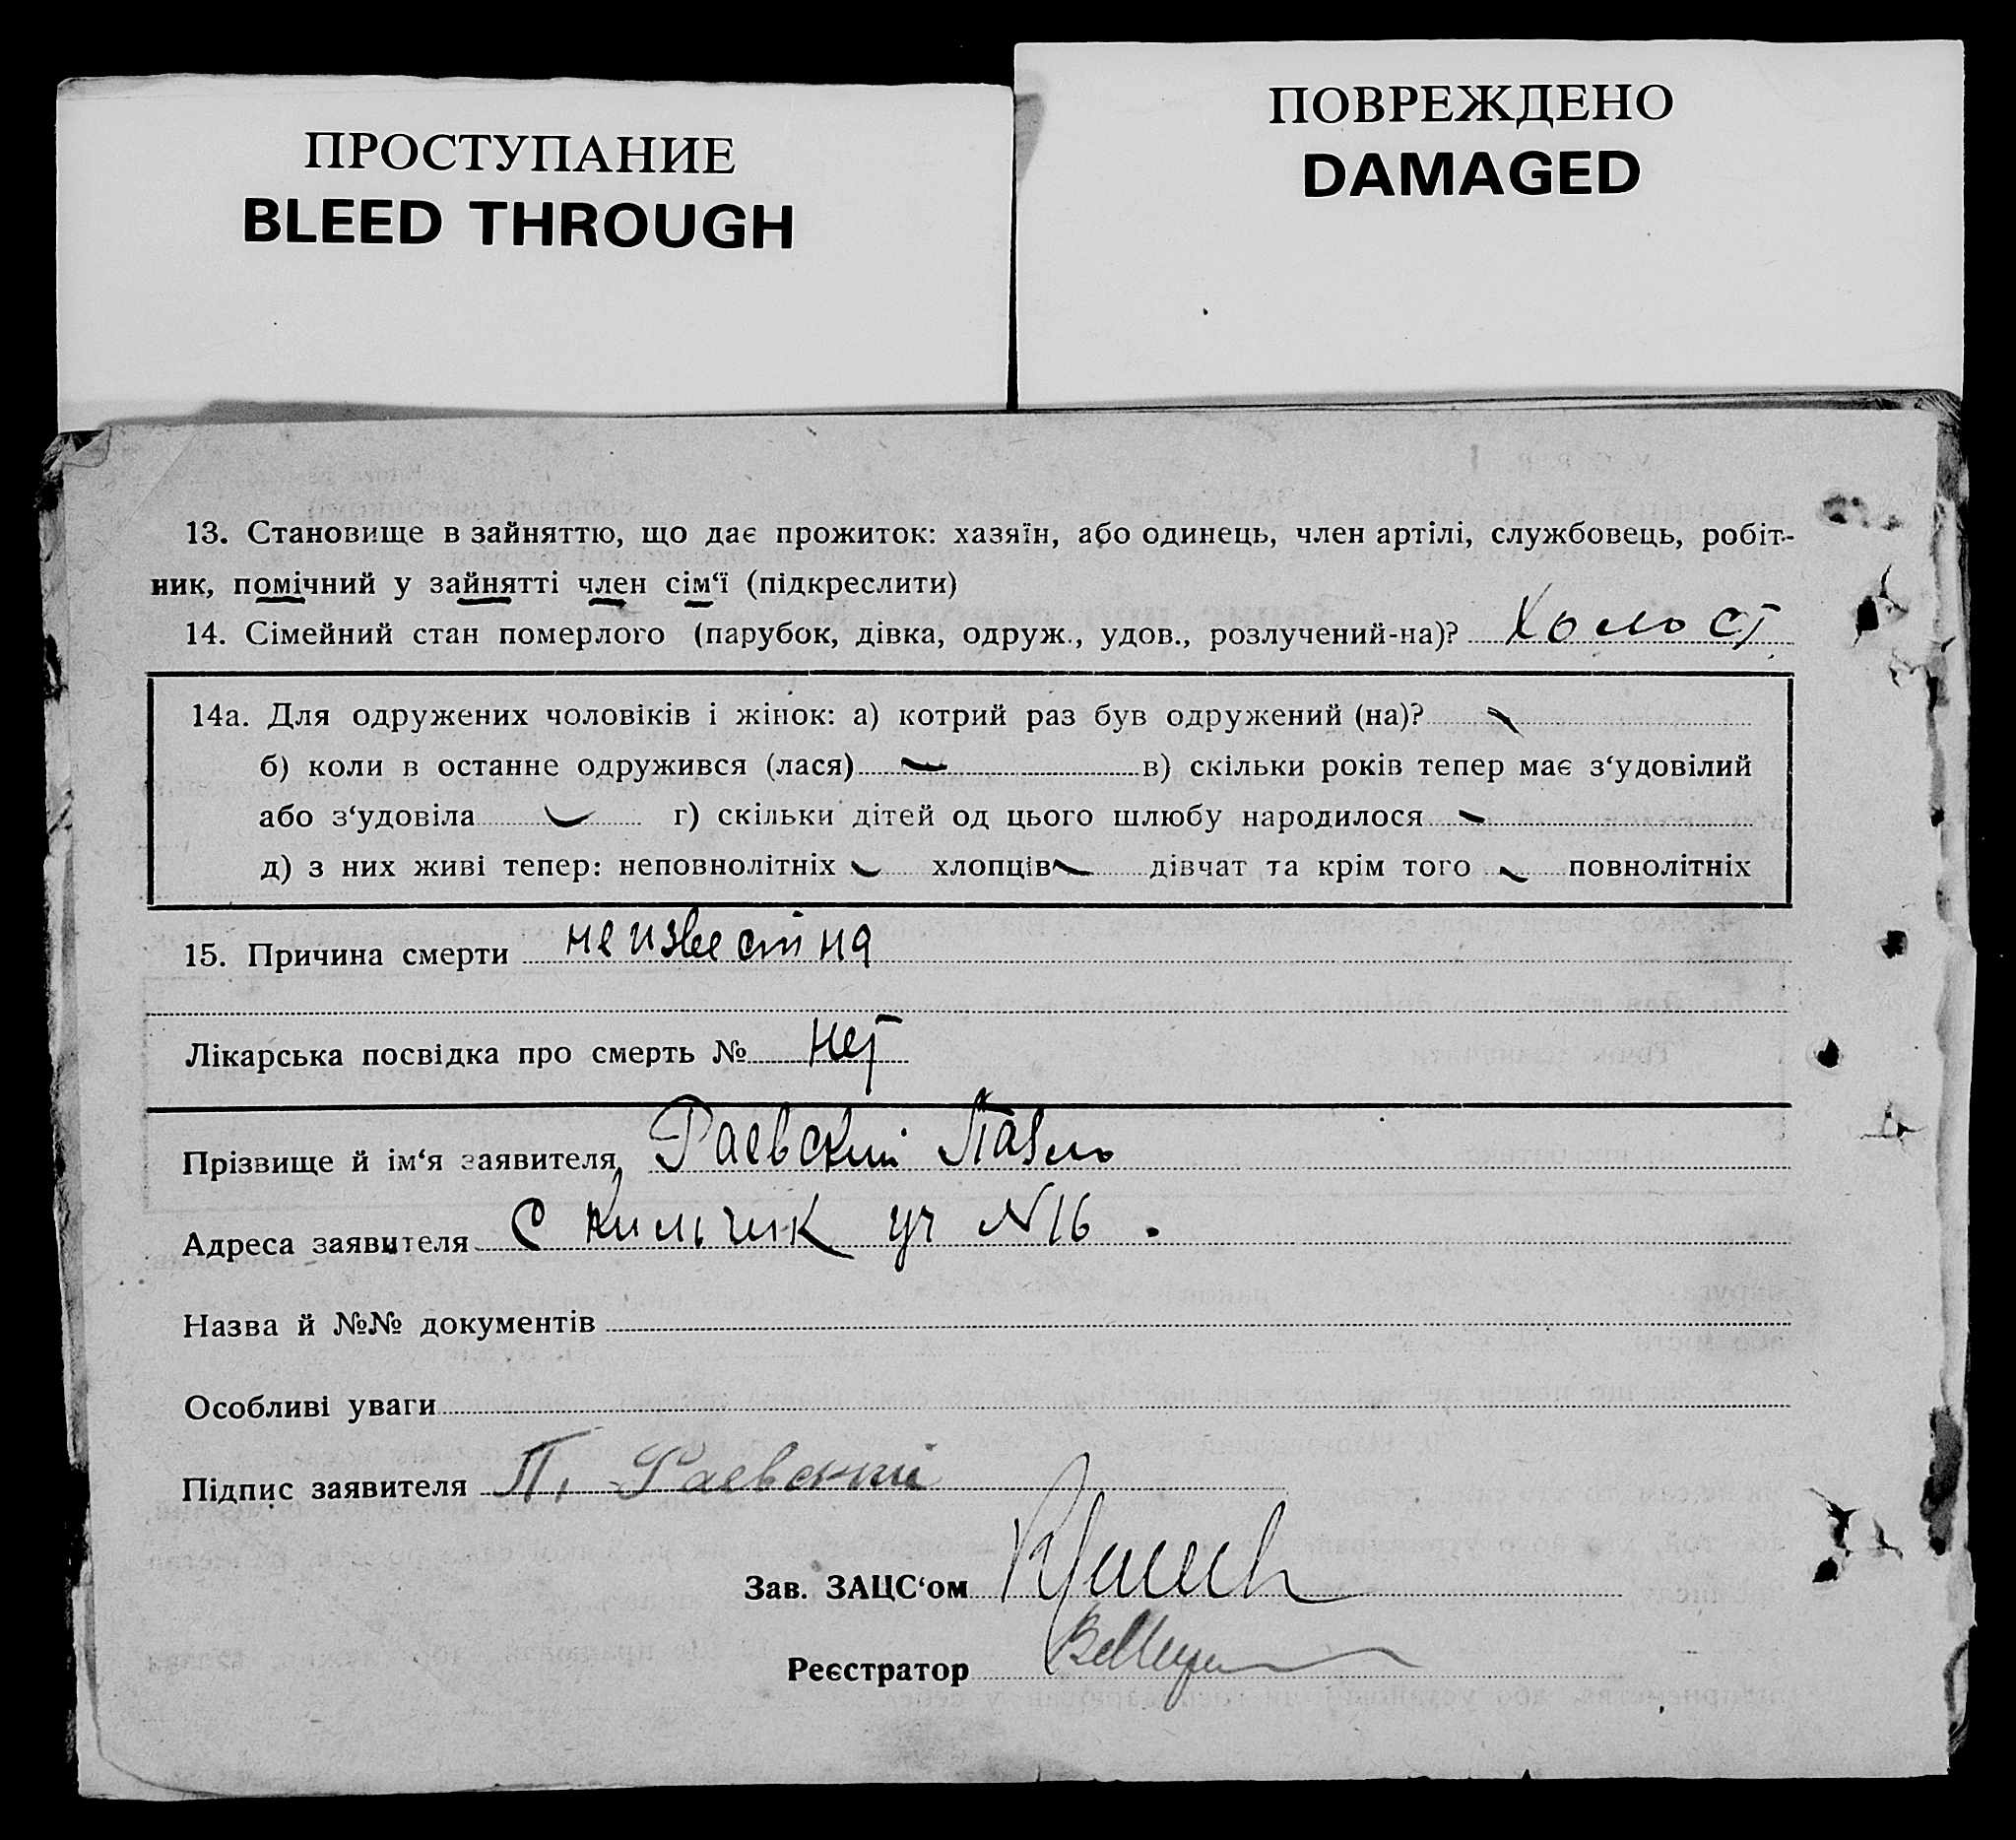 ПРОСТУПАНИЕ
BLEED THROUGH
ПОВРЕЖДЕНО
DAMAGED
13. Становище в зайняттю, що дає прожиток: хазяїн, або одинець, член артілі, службовець, робіт-
ник, помічний у зайнятті член сім‘ї (підкреслити)
14. Сімейний стан померлого (парубок, дівка, одруж., удов., розлучений-на)? Холост
14а. Для одружених чоловіків і жінок: а) котрий раз був одружений (на)?
б) коли в останне одружився (лася) в) скільки років тепер має з‘удовілий
або з‘удовіла г) скільки дітей од цього шлюбу народилося
д) з них живі тепер: неповнолітніх хлопців дівчат та крім того повнолітніх
15. Причина смерти неизвестна
Лікарська посвідка про смерть № нет
Прізвище й ім‘я заявителя Раевский Павло
Адреса заявителя С Кильчик уч N16.
Назва й №№ документів
Особливі уваги
Підпис заявителя П. Раевский
Зав. ЗАЦС‘ом
Реєстратор